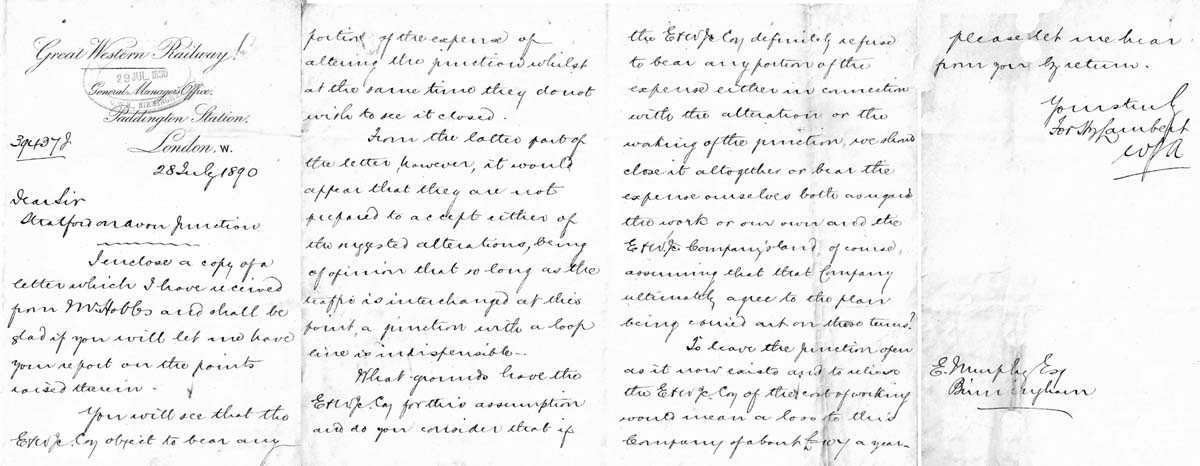 Great Western Railway.
29 JUL. 1890
General Manager's Office,
G.W.R. BIRMINGHAM
Paddington Station,
London, W.
28 July 1890
Dear Sir
Stratford on avon Junction
I enclose a copy of a
letter which I have received
from Mr Hobbs and shall be
glad if you will let me have
your report on the points
raised therein.
You will see that the
E&WJc. Coy object to bear any
portion of the expense of
altering the junction whilst
at the same time they do not
wish to see it closed.
From the latter part of
the letter, however, it would
appear that they are not
prepared to accept either of
the suggested alterations, being
of opinion that so long as the
traffic is interchanged at this
point, a junction with a loop
line is indispensible.
What grounds have the
E&WJc. Coy for this assumption
and do you consider that if
the E&WJc Coy definitely refuse
to bear any portion of the
expense either in connection
with the alteration or the
working of the junction, we should
close it altogether or bear the
expense ourselves both as regards
the work on our own and the
E&WJc Company's land, of course,
assuming that that Company
ultimately agree to the plan
being carried out on these terms?
To leave the junction open
as it now exists and to relieve
the E&WJc Coy of the cost of working
would mean a loss to this
Company of about £ a year.
please let me hear
from you by return.
Yours truly
For Hy Lambert
E. Murphy Esq
Birmingham